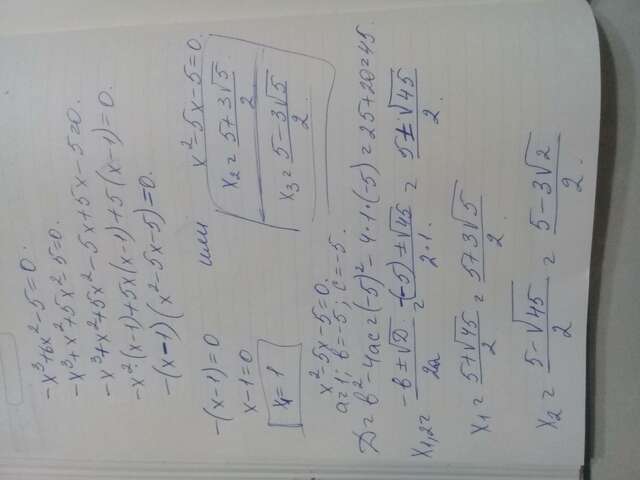 -x³+6x²-5=0.
-x³+x²+5x²-5=0.
-x³+x²+5x²-5x+5x-5=0.
-x²·(x-1)+5x(x-1)+5(x-1)=0.
-(x-1)(x²-5x-5)=0.
-(x-1)=0 или x²-5x-5=0.
x-1=0 x₂=(5+3√5)/2
x₁=1 x₃=(5-3√5)/2
x²-5x-5=0.
a=1; b=-5; c=-5.
D=b²-4ac=(-5)²-4·1·(-5)=25+20=45.
x₁,₂=(-b±√D)/2a=(-(-5)±√45)/(2·1)=(5±√45)/2.
x₁=(5+√45)/2=(5+3√5)/2.
x₂=(5-√45)/2=(5-3√2)/2.